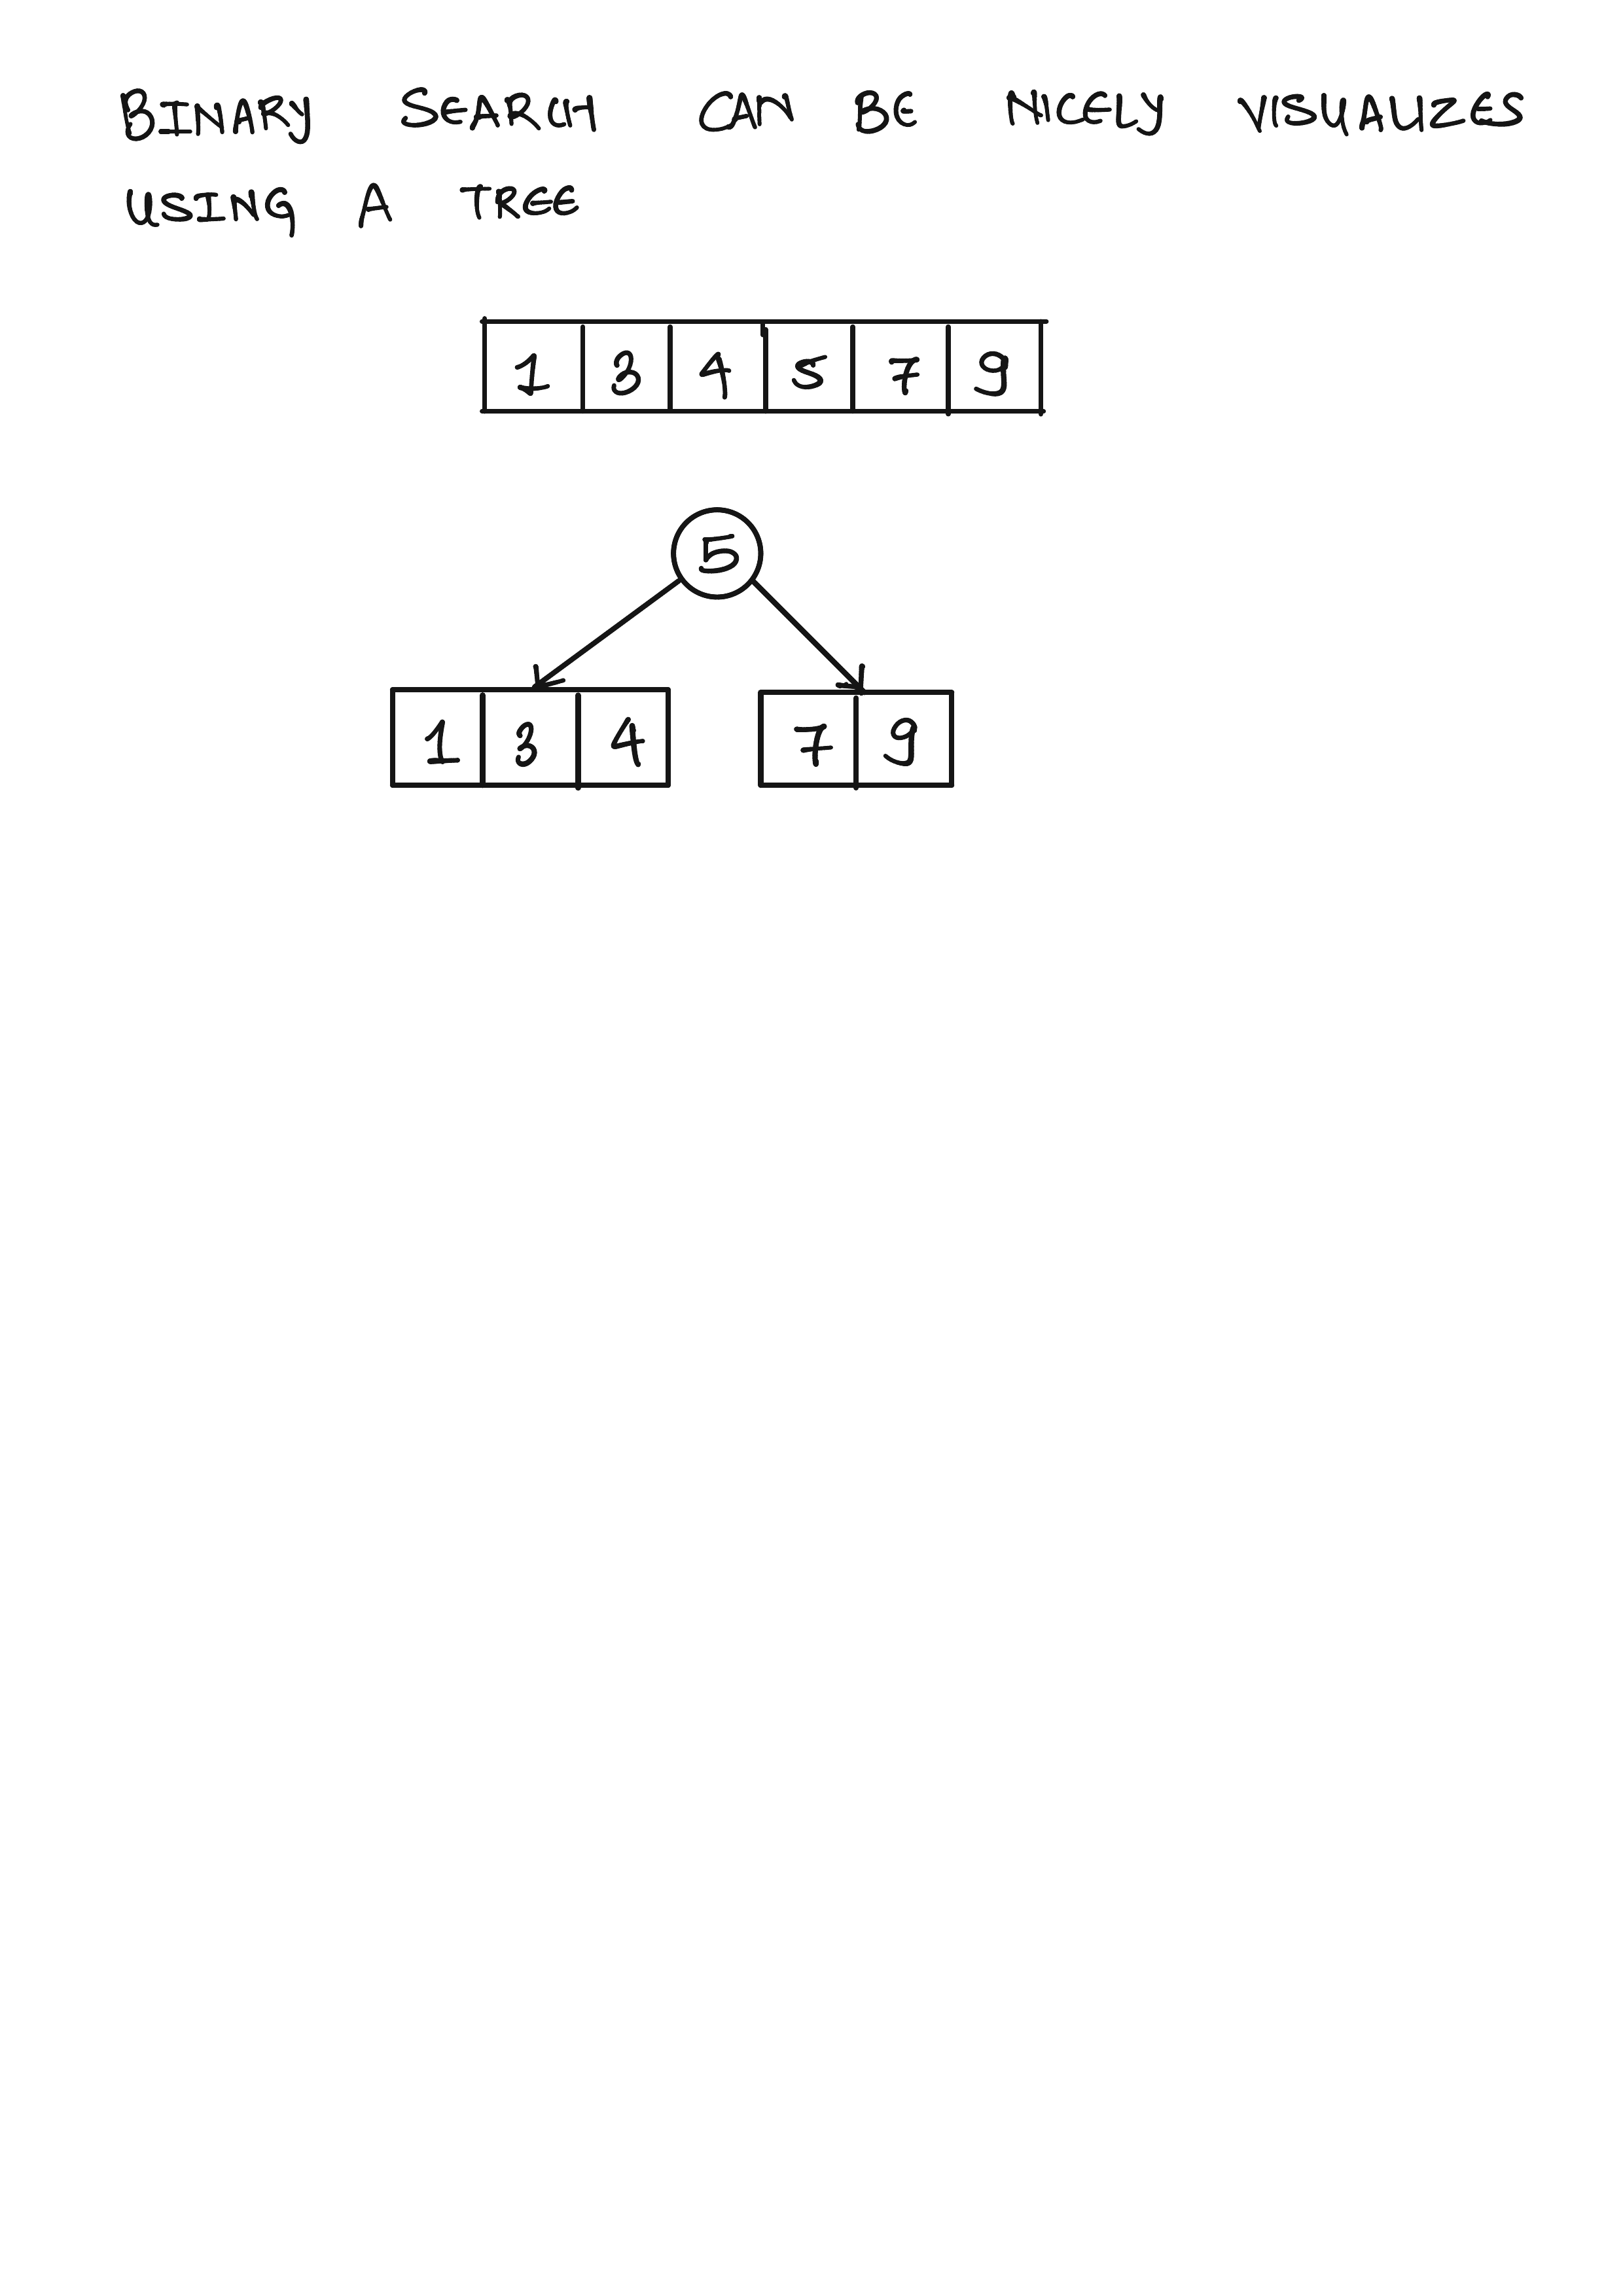 BINARY SEARCH CAN BE NICELY VISUALIZES
USING A TREE
1 3 4 5 7 9
5
1 3 4 7 9